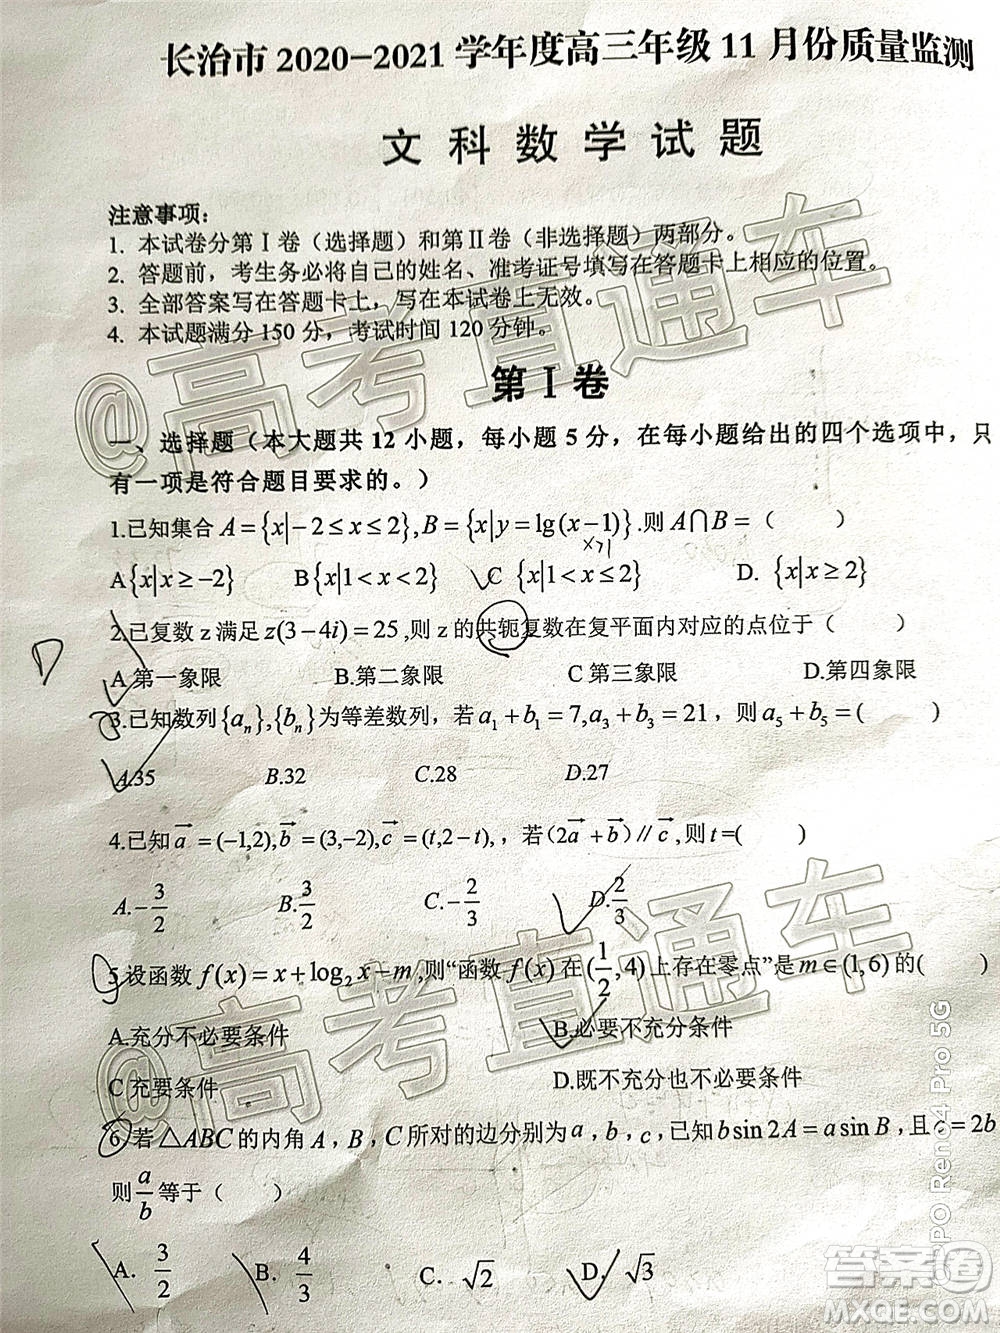 长治市 2020-2021 学年度高三年级 11 月份质量监测
文科数学试题
注意事项:
1. 本试卷分第Ⅰ卷（选择题）和第Ⅱ卷（非选择题）两部分。
2. 答题前，考生务必将自己的姓名、准考证号填写在答题卡上相应的位置。
3. 全部答案写在答题卡上，写在本试卷上无效。
4. 本试题满分 150 分，考试时间 120 分钟。
@高考直通车
第Ⅰ卷
一、选择题（本大题共 12 小题，每小题 5 分，在每小题给出的四个选项中，只
有一项是符合题目要求的。）
1.已知集合 A={x|-2≤x≤2},B={x|y=lg(x-1)}.则 A∩B=（ ）
x>1
A{x|x≥-2} B{x|1<x<2} C {x|1<x≤2} D. {x|x≥2}
2.已复数 z 满足 z(3-4i)=25,则 z 的共轭复数在复平面内对应的点位于（ ）
D
A 第一象限 B.第二象限 C.第三象限 D.第四象限
3.已知数列{aₙ},{bₙ}为等差数列，若 a₁+b₁=7,a₃+b₃=21，则 a₅+b₅=( )
A.35 B.32 C.28 D.27
4.已知 a⃗=(-1,2),b⃗=(3,-2),c⃗=(t,2-t),，若（2a⃗+b⃗）∥c⃗,则 t=( )
A.-3/2 B.3/2 C.-2/3 D.2/3
5.设函数 f(x)=x+log₂x-m,则“函数 f(x)在(1/2,4)上存在零点”是 m∈(1,6)的( )
A.充分不必要条件 B.必要不充分条件
C 充要条件 D.既不充分也不必要条件
@高考直通车
6.若△ABC 的内角 A，B，C 所对的边分别为 a，b，c,已知 b sin 2A=a sin B，且 c=2b
则 a/b 等于（ ）
A. 3/2 B. 4/3 C. √2 D. √3
OPPO Reno4 Pro 5G
答案圈
MXQE.COM